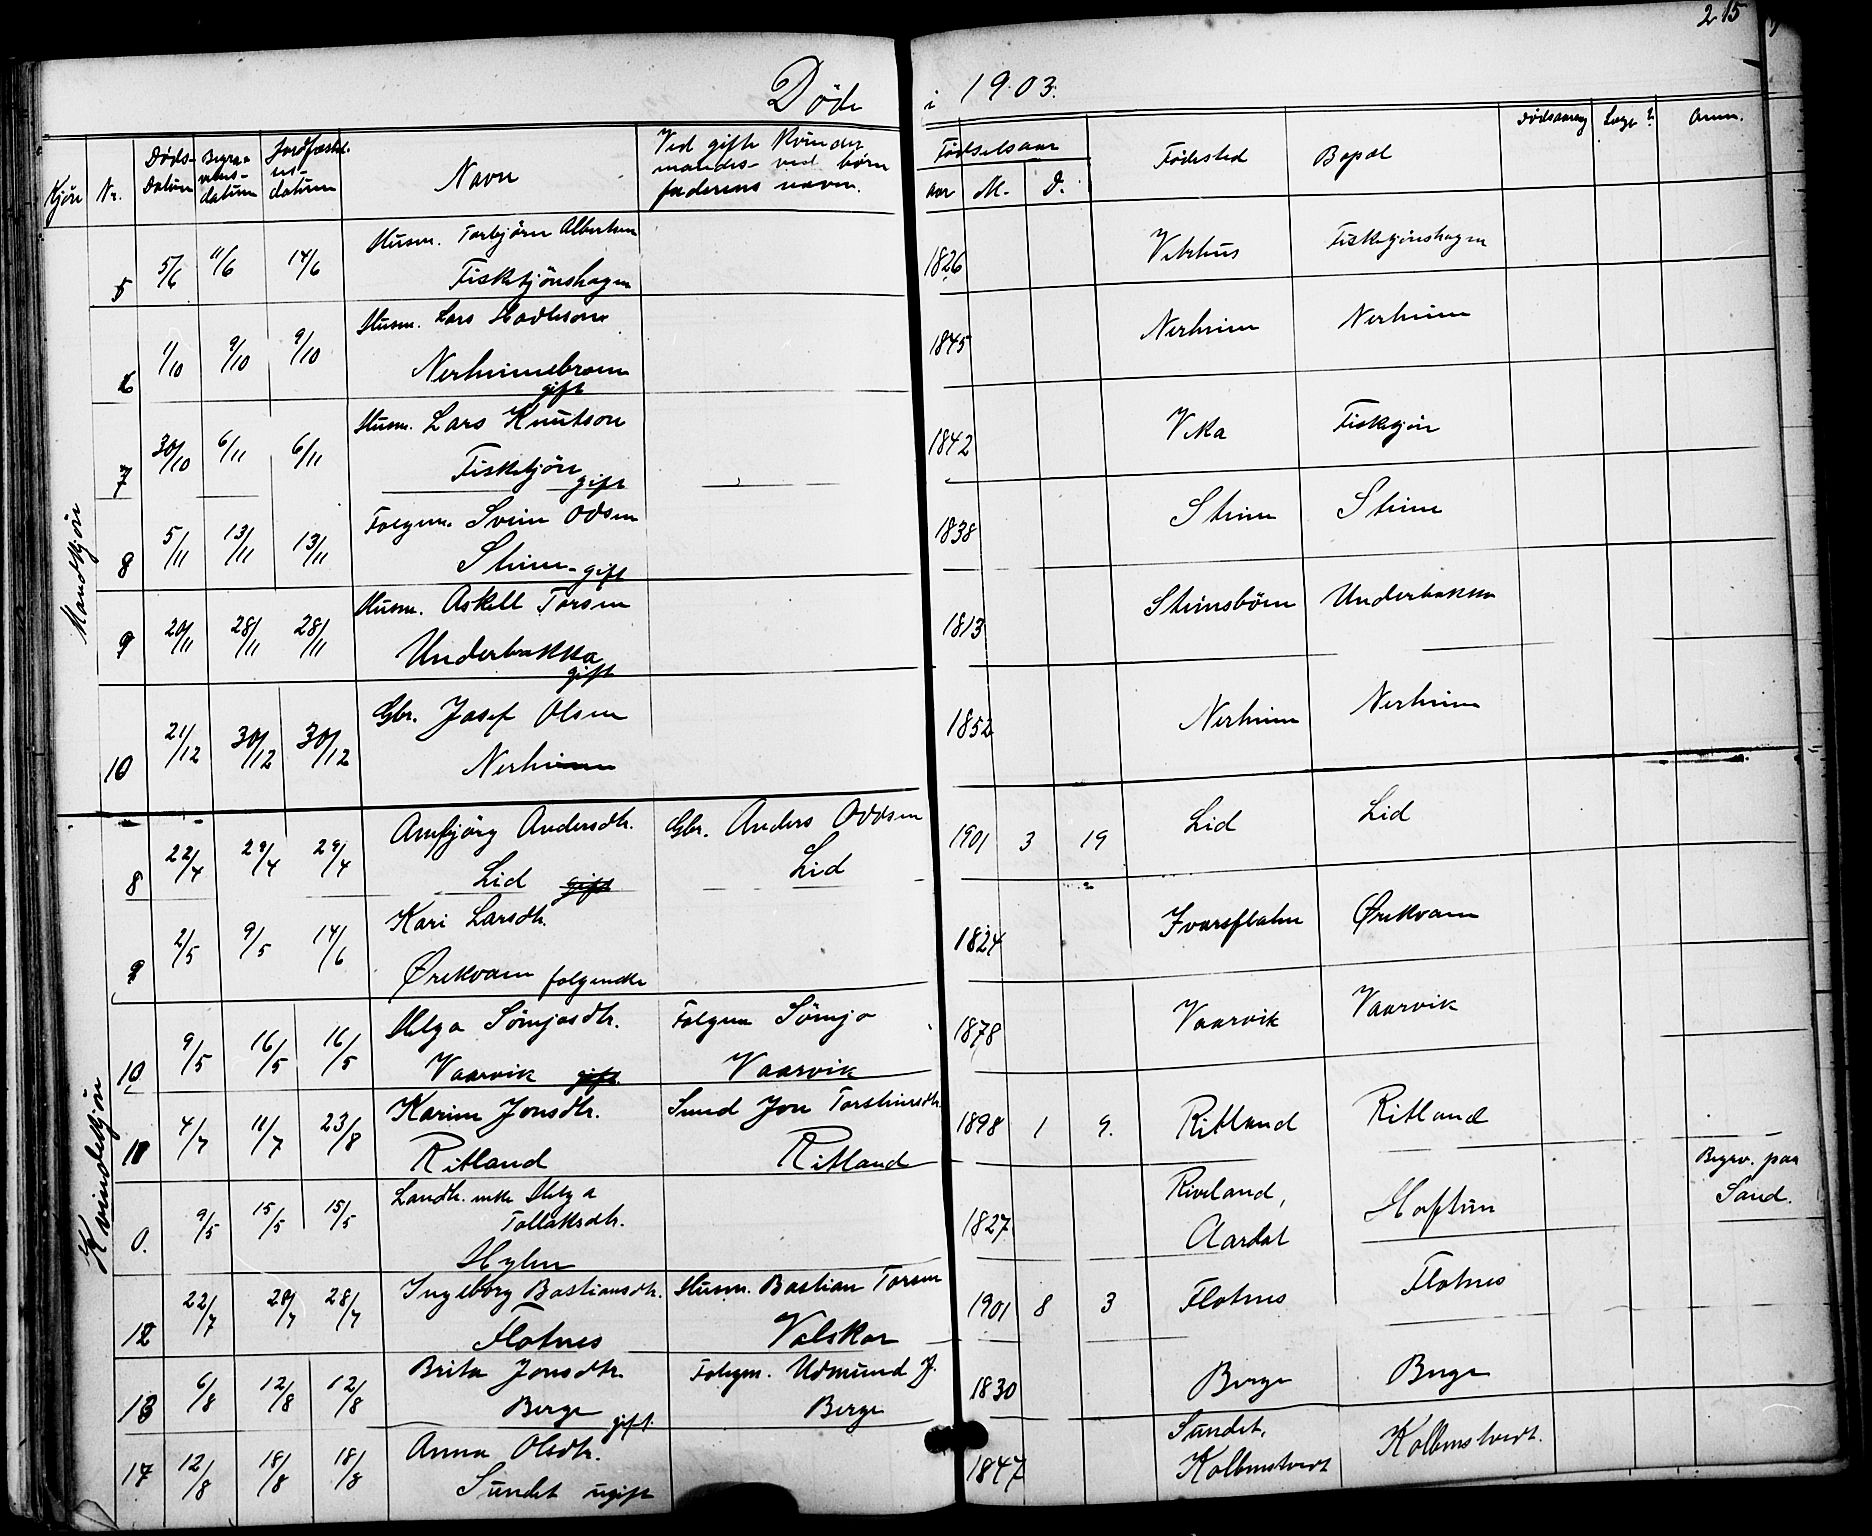 215
Døde i 1903.
Kjön Nr. Døds-Datum Begravelses-datum Jordfæstelses-datum Navn Ved gifte Kvinder mandes- ved børn faderens navn. Fødselsaar aar M. D. Fødested Bopæl Dødsaarsag Læge? Anm.
Mandkjön
5 5/6 11/6 14/6 Husm. Torbjörn Albertsen 1826 Fisketjönshagen
Fisketjönshagen
6 1/10 9/10 9/10 Husm. Lars 1845 Nerheim Nerheim
gift
7 30/10 6/11 6/11 Husm. Lars Knutson 1842 Vika Fisketjön
Fisketjön gift
8 5/11 13/11 13/11 Folgm. Svein Odsen 1838 Steine Steine
Steine - gift
9 20/11 28/11 28/11 Husm. Askell Torsen 1813 Steinsböen Underbakka
Underbakka gift
10 21/12 30/12 30/12 Gbr. Josef Olsen 1852 Nerheim Nerheim
Nerheim
Kvindekjön
8 22/4 29/4 29/4 Andersdtr. Gbr. Anders Oddsen 1901 3 19 Lid Lid
Lid gift Lid
9 2/5 9/5 14/6 Kari Larsdtr. 1824 Ivarsflaten Ørekvam
Ørekvam folgenke
10 9/5 16/5 16/5 Helga Sömjasdtr. Folgem Sömja 1878 Vaarvik Vaarvik
Vaarvik gift Vaarvik
11 4/7 11/7 23/8 Karine Jonsdtr. Smed Jon Torsteinsdtr. 1898 1 9. Ritland Ritland
Ritland Ritland
0. 9/5 15/5 15/5 Landh. enke Helga 1827 Riveland, Hoftun Begrav. paa
Tollaksdtr. Aardal Sand.
Hylen
12 22/7 28/7 28/7 Ingeborg Bastiansdtr. Husm. Bastian Torsen 1901 8 3 Flotnes Flotnes
Flotnes Valskar
13 6/8 12/8 12/8 Brita Jonsdtr. Folgm. Udmund J. 1830 Berge Berge
Berge gift. Berge
14 12/8 18/8 18/8 Anna Olsdtr. 1847 Sundet, Kolbenstvedt.
Sundet ugift Kolbenstvedt